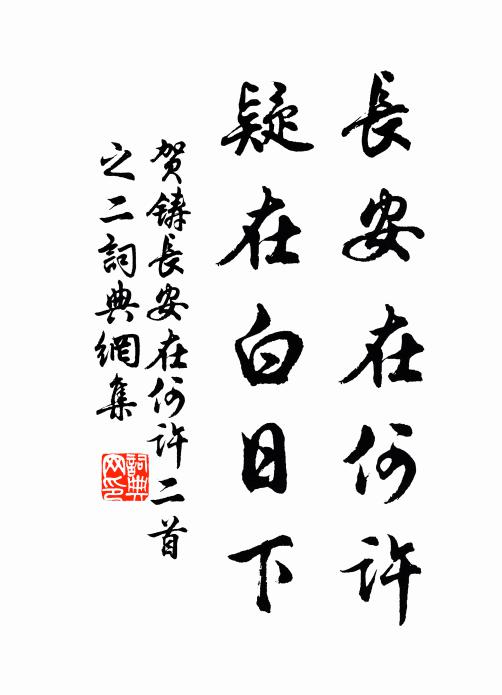 長安在何許
疑在白日下
賀鑄長安在何許二首
之二詞典網集
詞典
网印